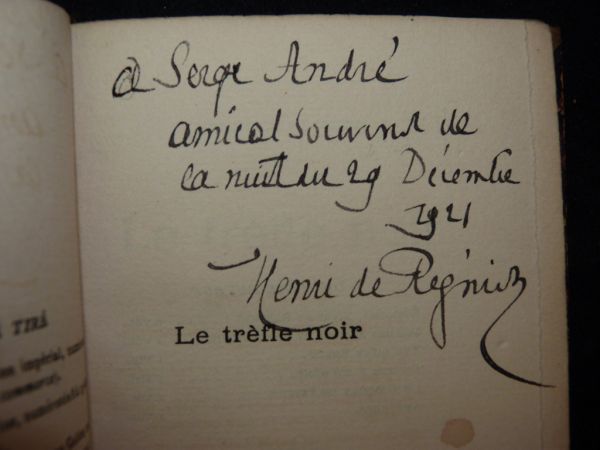 à Serge André
amical souvenir de
la nuit du 29 Décembre
1921
Henri de Régnier
Le trèfle noir
TIRÉ
impérial,
commerce).